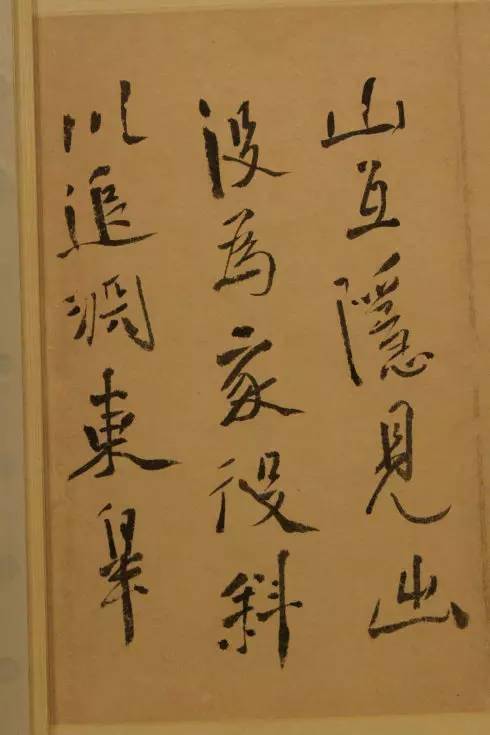 山互隱見出
没為家役斜
川追淵東皋